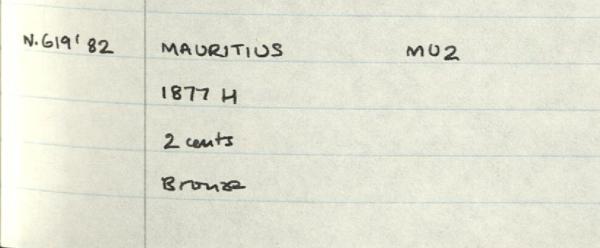 N.619'82 MAURITIUS MU2
1877 H
2 cents
Bronze